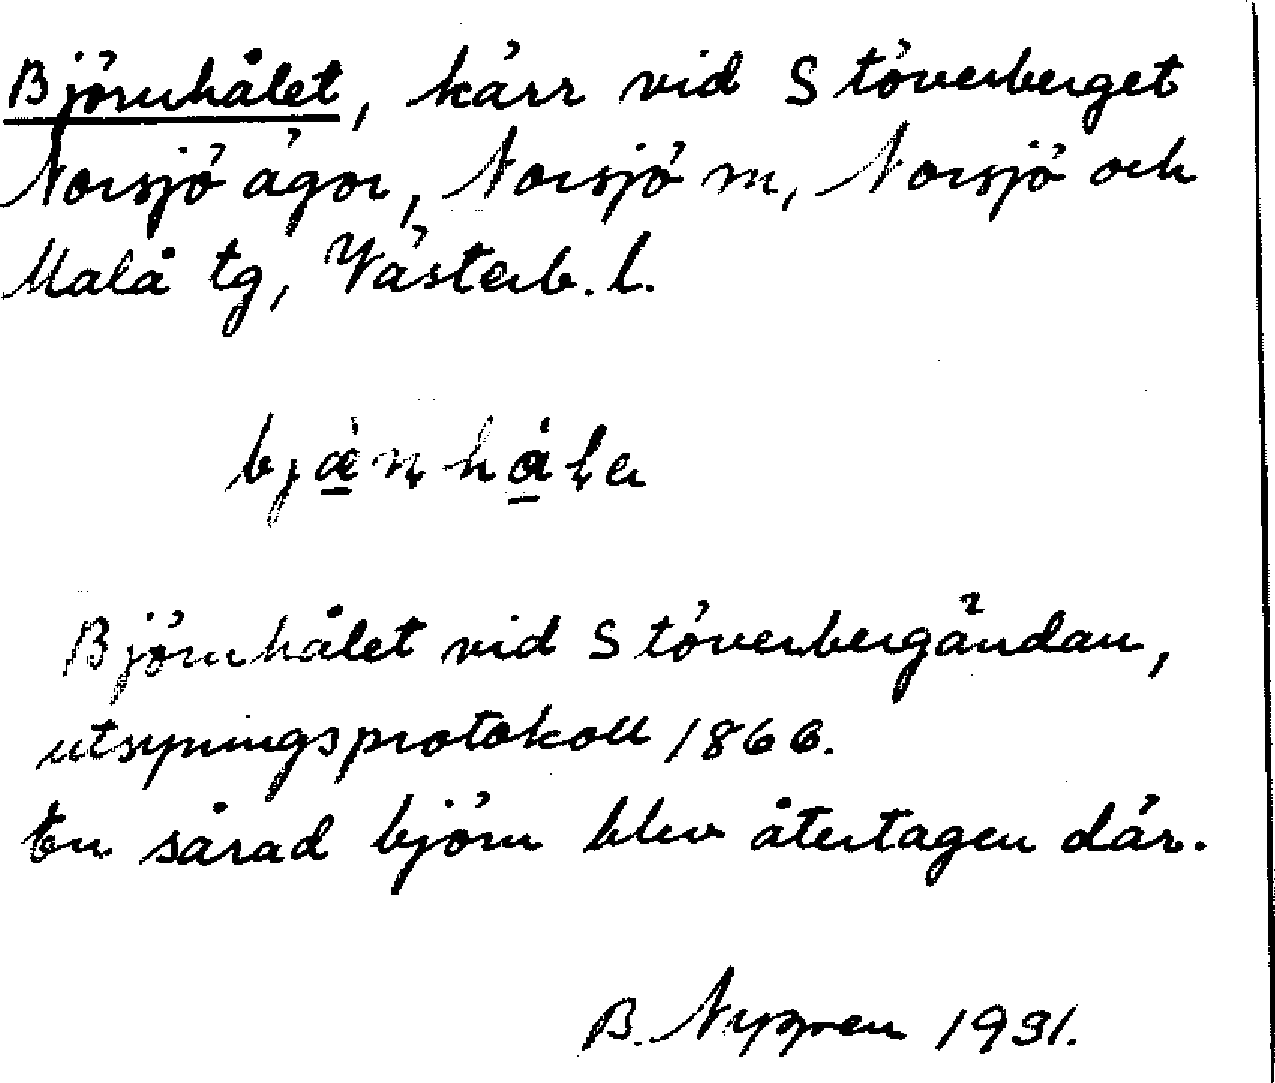 Björnhålet, kärr vid Stöverberget
Norsjö ägor, Norsjö sn, Norsjö och
Malå tg, Västerb. l.
bjæ̀ṇhåla
Björnhålet vid Stöverbergändan,
utsyningsprotokoll 1866.
En sårad björn blev återtagen där.
B. Nygren 1931.